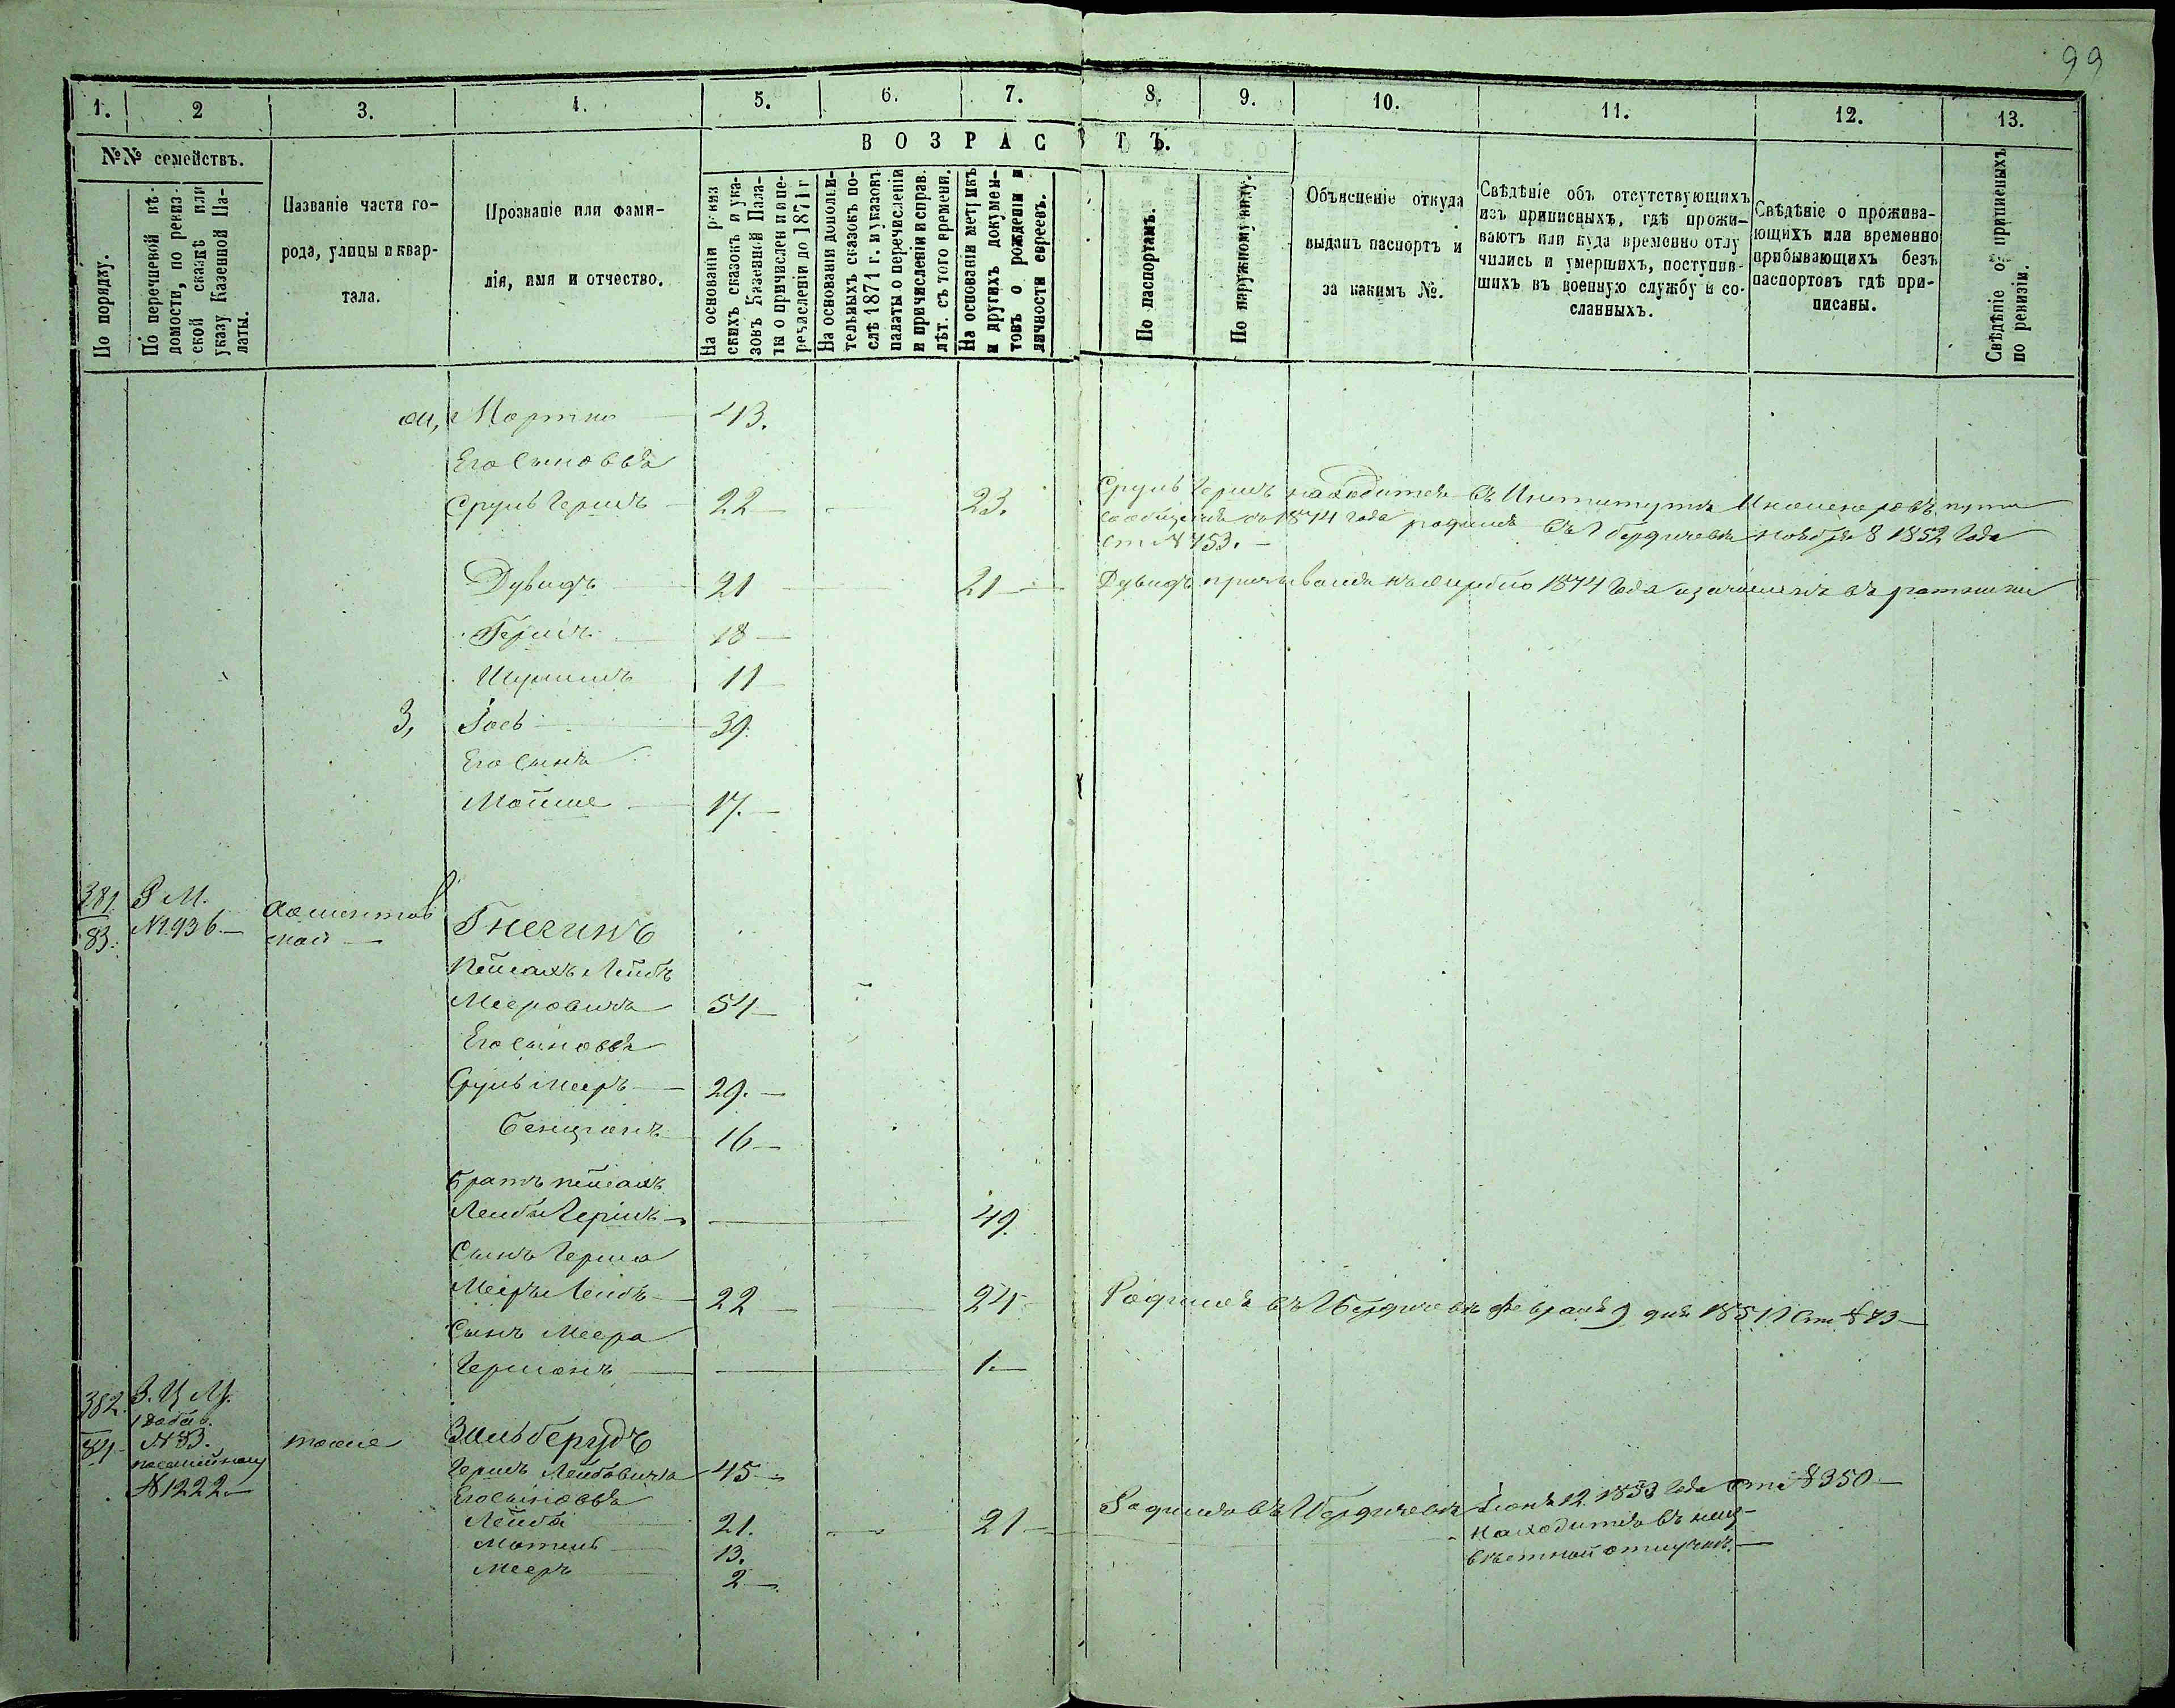 99
1. 2 3. 4. 5. 6. 7. 8. 9. 10. 11. 12. 13.
ВОЗРАСТЪ.
№№ семействъ.
По порядку.
По перечневой вѣ-
домости, по ревиз-
ской сказкѣ или
указу Казенной Па-
латы.
Названіе части го-
рода, улицы и квар-
тала.
Прозваніе или фами-
лія, имя и отчество.
На основаніи ревиз
скихъ сказокъ и ука-
зовъ Казенной Пала-
ты о причислен и пе-
речисленіи до 1871 г
На основаніи дополни-
тельныхъ сказокъ по-
слѣ 1871 г. и указовъ
палаты о перечисленіи
и причисленіи и справ.
лѣт. съ того времени.
На основаніи метрикъ
и другихъ докумен-
товъ о рожденіи и
личности евреевъ.
По паспортамъ.
По наружному виду.
Объясненіе откуда
выданъ паспортъ и
за какимъ №.
Свѣдѣніе объ отсутствующихъ
изъ приписныхъ, гдѣ прожи-
ваютъ или куда временно отлу
чились и умершихъ, поступив-
шихъ въ военную службу и со-
сланныхъ.
Свѣдѣніе о прожива-
ющихъ или временно
прибывающихъ безъ
паспортовъ гдѣ при-
писаны.
Свѣдѣніе о приписныхъ
по ревизіи.
Мортко 43.
Его Сыновья
Сруль Гершъ 22 23. Сруль Гершъ находится въ Институтѣ Инженеровъ пути
сообщенія 1874 года родился въ Г Бердичевѣ ноября 8 1852 года
ст № 453.
Дувидъ 21 21 Дувидъ 1874 года
Гершъ 18
11
3, Іось 39.
Его Сынъ
Мойше 17.
381 Р М.
83. №1936.
Гнесинъ
Пейсахъ Лейбъ
Мееровичъ 54
Его сыновья
Сруль Мееръ 29.
Бенционъ 16
Братъ Пейсахъ
Лейба Гершъ 49.
Сынъ Герша
Мееръ Лейбъ 22 24 Родился въ Г Бердичевѣ февраля 9 дня 1851 г Ст № 73
Сынъ Меера
Гершонъ 1.
382. №83. тоже Зильбергудъ
84 посемейному
№1222.
Гершъ Лейбовичъ 45
Его сыновья
Лейба 21. 21 Родился въ Г Бердичевѣ Іюня 12 1853 года Ст № 350
Мотель 13. находится въ неиз-
вѣстной отлучкѣ.
Мееръ 2